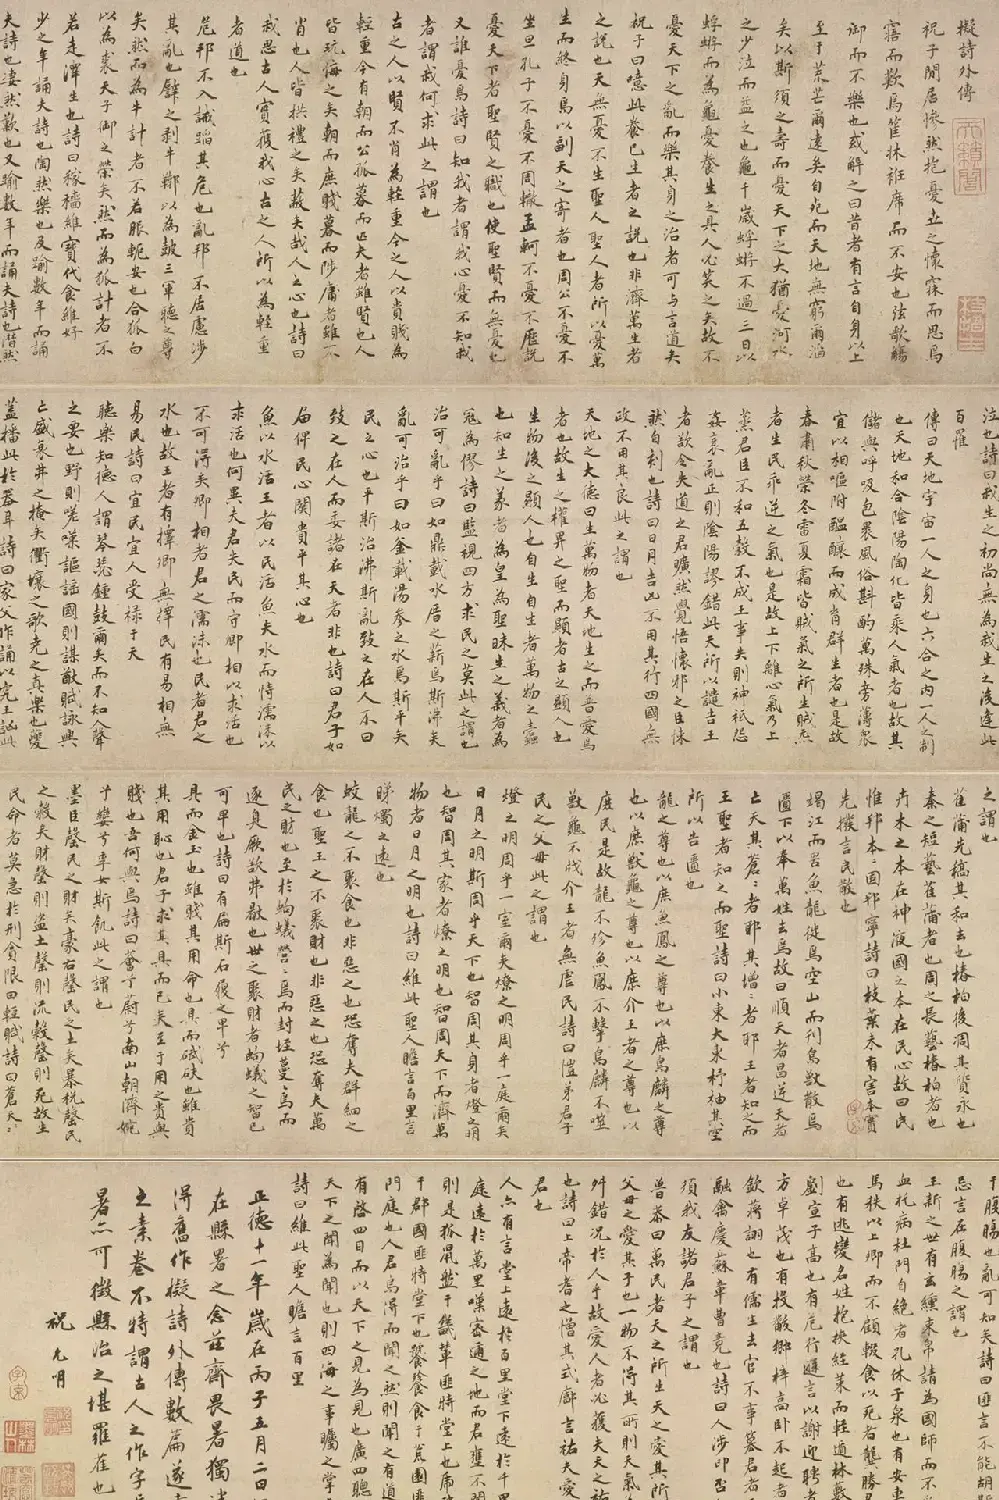 擬詩外傳
祝子閒居慘然抱憂立之懷寐而思焉
寤而歎焉筐牀衽席而不安也法歌觴
御而不樂也或解之曰昔者有言自身以上
至于荒芒爾遠矣自死而天地無窮爾滔
矣以斯須之壽而憂天下之大猶憂河水
之少泣而益之也龜千歲蜉蝣不過三日以
蜉蝣而為龜憂養生之具人必笑之矣故不
憂天下之亂而樂其身之治者可与言道矣
祝子曰噫此養己生者之説也非濟萬生者
之説也天無憂不生聖人聖人者所以憂萬
生而終身焉以副天之寄者也周公不憂不
坐旦孔子不憂不周轍孟軻不憂不歷説
憂天下者聖賢之職也使聖賢而無憂也
又誰憂焉詩曰知我者謂我心憂不知我
者謂我何求此之謂也
古之人以賢不肖為輕重今之人以貴賤為
輕重今有朝而公孤暮而匹夫者雖賢也人
皆玩侮之矣朝而庶賤暮而陟庸者雖不
肖也人皆拱禮之矣薮夫哉人之心也詩曰
我思古人實獲我心古之人所以為輕重
者道也
危邦不入誡蹈其危也亂邦不居慮涉
其亂也
矣然而為牛計者不若服軛安也合狐白
以為裘天子御之榮矣然而為狐計者不
若走澤生也詩曰稼穡維寶代食維好
少之年誦夫詩也陶然樂也及踰數年而誦
夫詩也凄然歎也又踰數年而誦夫詩也潸然
泣也詩曰我生之初尚無為我生之後逢此
百罹
傳曰天地宇宙一人之身也六合之内一人之制
也天地和合陰陽陶化皆乘人氣者也故其
儲與呼吸包裹風俗斟酌萬殊旁薄眾
宜以相嘔咐醞釀而成育群生者也是故
春肅秋榮冬雷夏霜皆賊氣之所生賊氣
者生民乖逆之氣也是故上下離心氣乃上
蒸君臣不和五穀不成王事失則神祇怨
姦衰亂正則陰陽謬錯此天所以譴告王
者歟今失道之君曠然覺悟懷邪之臣怵
然自刻也詩曰日月告凶不用其行四國無
政不用其良此之謂也
天地之大德曰生萬物者天地生之而皆愛焉
者也故生之權畀之聖而顯者古之顯人也
生物後之顯人也自生自生者萬物之蠹
也知生之義者為皇為聖昧生之義者為
寇為僇詩曰監視四方求民之莫此之謂也
治可亂乎曰如鼎載水居之薪焉斯沸矣
亂可治乎曰如釜載湯參之水焉斯平矣
民之心也平斯治沸斯亂致之在人不曰
致之在人而妄諸在天者非也詩曰君子如
屆俾民心闋貴平其心也
魚以水活王者以民活魚失水而恃濡沫以
求活也何異夫君失民而守卿相以求活也
不可得矣卿相者君之濡沫也民者君之
水也故王者有擇卿無擇民有易相無
易民詩曰宜民宜人受禄于天
聽樂知德人謂琴瑟鍾鼓爾矣而不知人聲
之要也野則嗟噗謳謡國則謀猷賦詠興
亡盛衰井之掩矣衢壤之歌堯之真樂也變
蓋播此於器耳詩曰家父作誦以究王訩此
之謂也
萑蒲先槁其和去也椿柏後凋其質永也
秦之短藝萑蒲者也周之長藝椿柏者也
卉木之本在神液國之本在民心故曰民
惟邦本本固邦寧詩曰枝葉未有害本實
先撥言民散也
竭江而罟魚龍徙焉空山而刊鳥獸散焉
匱下以奉萬姓去焉故曰順天者昌逆天者
亡天其蒼蒼者耶其增增者耶王者知之而
王聖者知之而聖詩曰小東大東杼柚其空
所以告匱也
龍之尊也以庶魚鳳之尊也以庶鳥麟之尊
也以庶獸龜之尊也以庶介王者之尊也以
庶民是故龍不殄魚鳳不擊鳥麟不噬
獸龜不戕介王者無虐民詩曰愷弟君子
民之父母此之謂也
燈之明周乎一室爾夫燎之明周乎一庭爾矣
日月之明斯周乎天下也智周其身者燈之明
也智周其家者燎之明也智周天下而濟萬
物者日月之明也詩曰維此聖人瞻言百里言
睇燭之遠也
蛟龍之不聚食也非惡之也恐奪夫群細之
食也聖王之不聚財也非惡之也恐奪夫萬
民之財也至於蚼蟻營營焉而封垤蔓焉而
逐臭厥故弗歇也世之聚財者蚼蟻之智也
可卑也詩曰有扁斯石履之卑兮
具而金玉也雖賤其用命也具而碔砆也雖貴
其用恥也君子求其具而已矣至于用之貴與
賤也吾何與焉詩曰薈兮蔚兮南山朝隮婉
兮孌兮季女斯飢此之謂也
墨臣罄民之財矣豪右罄民之土矣暴税罄民
之穀夫財罄則盜土罄則流穀罄則死故生
民命者莫急於刑貪限田輕賦詩曰蒼天
于腹腸也亂可知矣詩曰匪言不能胡斯
忌言在腹腸之謂也
王新之世有玄纁束帛請為國師而不
血託病杜門自絶者孔休子泉也有安車
馬秩以上卿而不顧輟食以死者龔勝
也有逃變名姓抱挾經業而輕遁林藪
劉宣子高也有危行遜言以謝迎聘者
方卓茂也有投散鄉梓高卧不起者
欽蔣詡也有儒生去官不事暮君者
融禽慶蘇章曹竟也詩曰人涉卬否
須我友諸君子之謂也
曾恭曰萬民者天之所生天之愛其所
父母之愛其子也一物不得其所則天氣
舛錯況於人乎故愛人者必獲夫天之祐
也詩曰上帝耆之憎其式廓言祐夫愛
君也
人亦有言堂上遠於百里堂下遠於千里
庭遠於萬里噗塞通之地而君壅不聞
則是狐鼠盬千幾草匪特堂上也席
千群國匪特堂下也餮飧于荒圉匪
門庭也人君焉得而聞之然則聞之有道
有啓四目而以天下之見為見也廣四聰
天下之聞為聞也則四海之事矚之掌
詩曰維此聖人瞻言百里
正德十一年歲在丙子五月二日
在縣署之念茲齋畏暑獨
得舊作擬詩外傳數篇遂
之素卷不特謂古人之作字
暑亦可徵縣治之堪羅雀也
祝允明